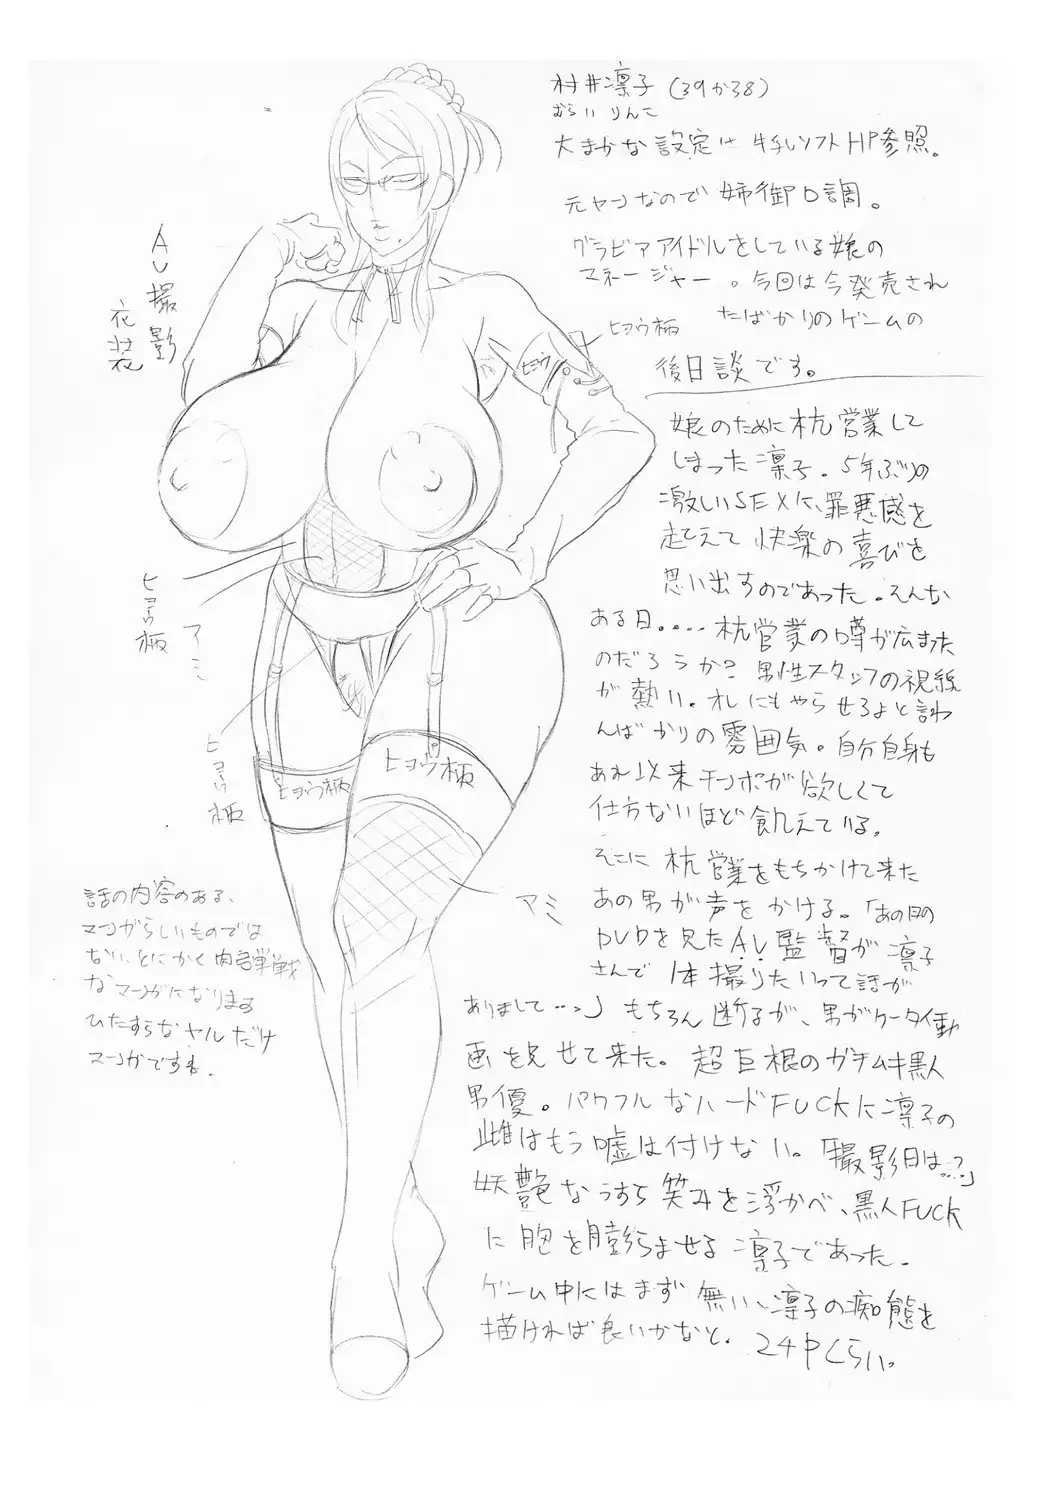 村井凛子(39か38)
むらい りんこ
大まかな設定は 牛乳ソフトHP参照。
元ヤンなので 姉御口調。
グラビアアイドルをしている娘の
マネージャー。今回は今発売され
たばかりのゲームの
後日談です。
娘のために枕営業して
しまった凛子。5年ぶりの
激しいSEXに、罪悪感を
超えて快楽の喜びを
思い出すのであった。そんな
ある日。....枕営業の噂が広まった
のだろうか?男性スタッフの視線
が熱い。オレにもやらせろよと言わ
んばかりの雰囲気。自分自身も
あれ以来チンポが欲しくて
仕方ないほど飢えている。
そこに枕営業をもちかけて来た
あの男が声をかける。「あの日の
DVDを見たAV監督が凛子
さんで1本撮りたいって話が
ありまして...」もちろん断るが、男がケータイ動
画を見せて来た。超巨根のガチムキ黒人
男優。パワフルなハードFUCKに凛子の
雌はもう嘘は付けない。「撮影日は...?」
妖艶なうすら笑みを浮かべ、黒人FUCK
に胸を膨らませる凛子であった。
ゲーム中にはまず無い、凛子の痴態を
描ければ良いかなと。24Pくらい。
AV撮影
衣装
ヒョウ柄
ヒョウ
ヒョウ柄
アミ
ヒョウ柄
ヒョウ柄
ヒョウ柄
アミ
話の内容のある、
マンガらしいものでは
ない、とにかく肉弾戦
なマンガになります
ひたすらなヤルだけ
マンガですね。